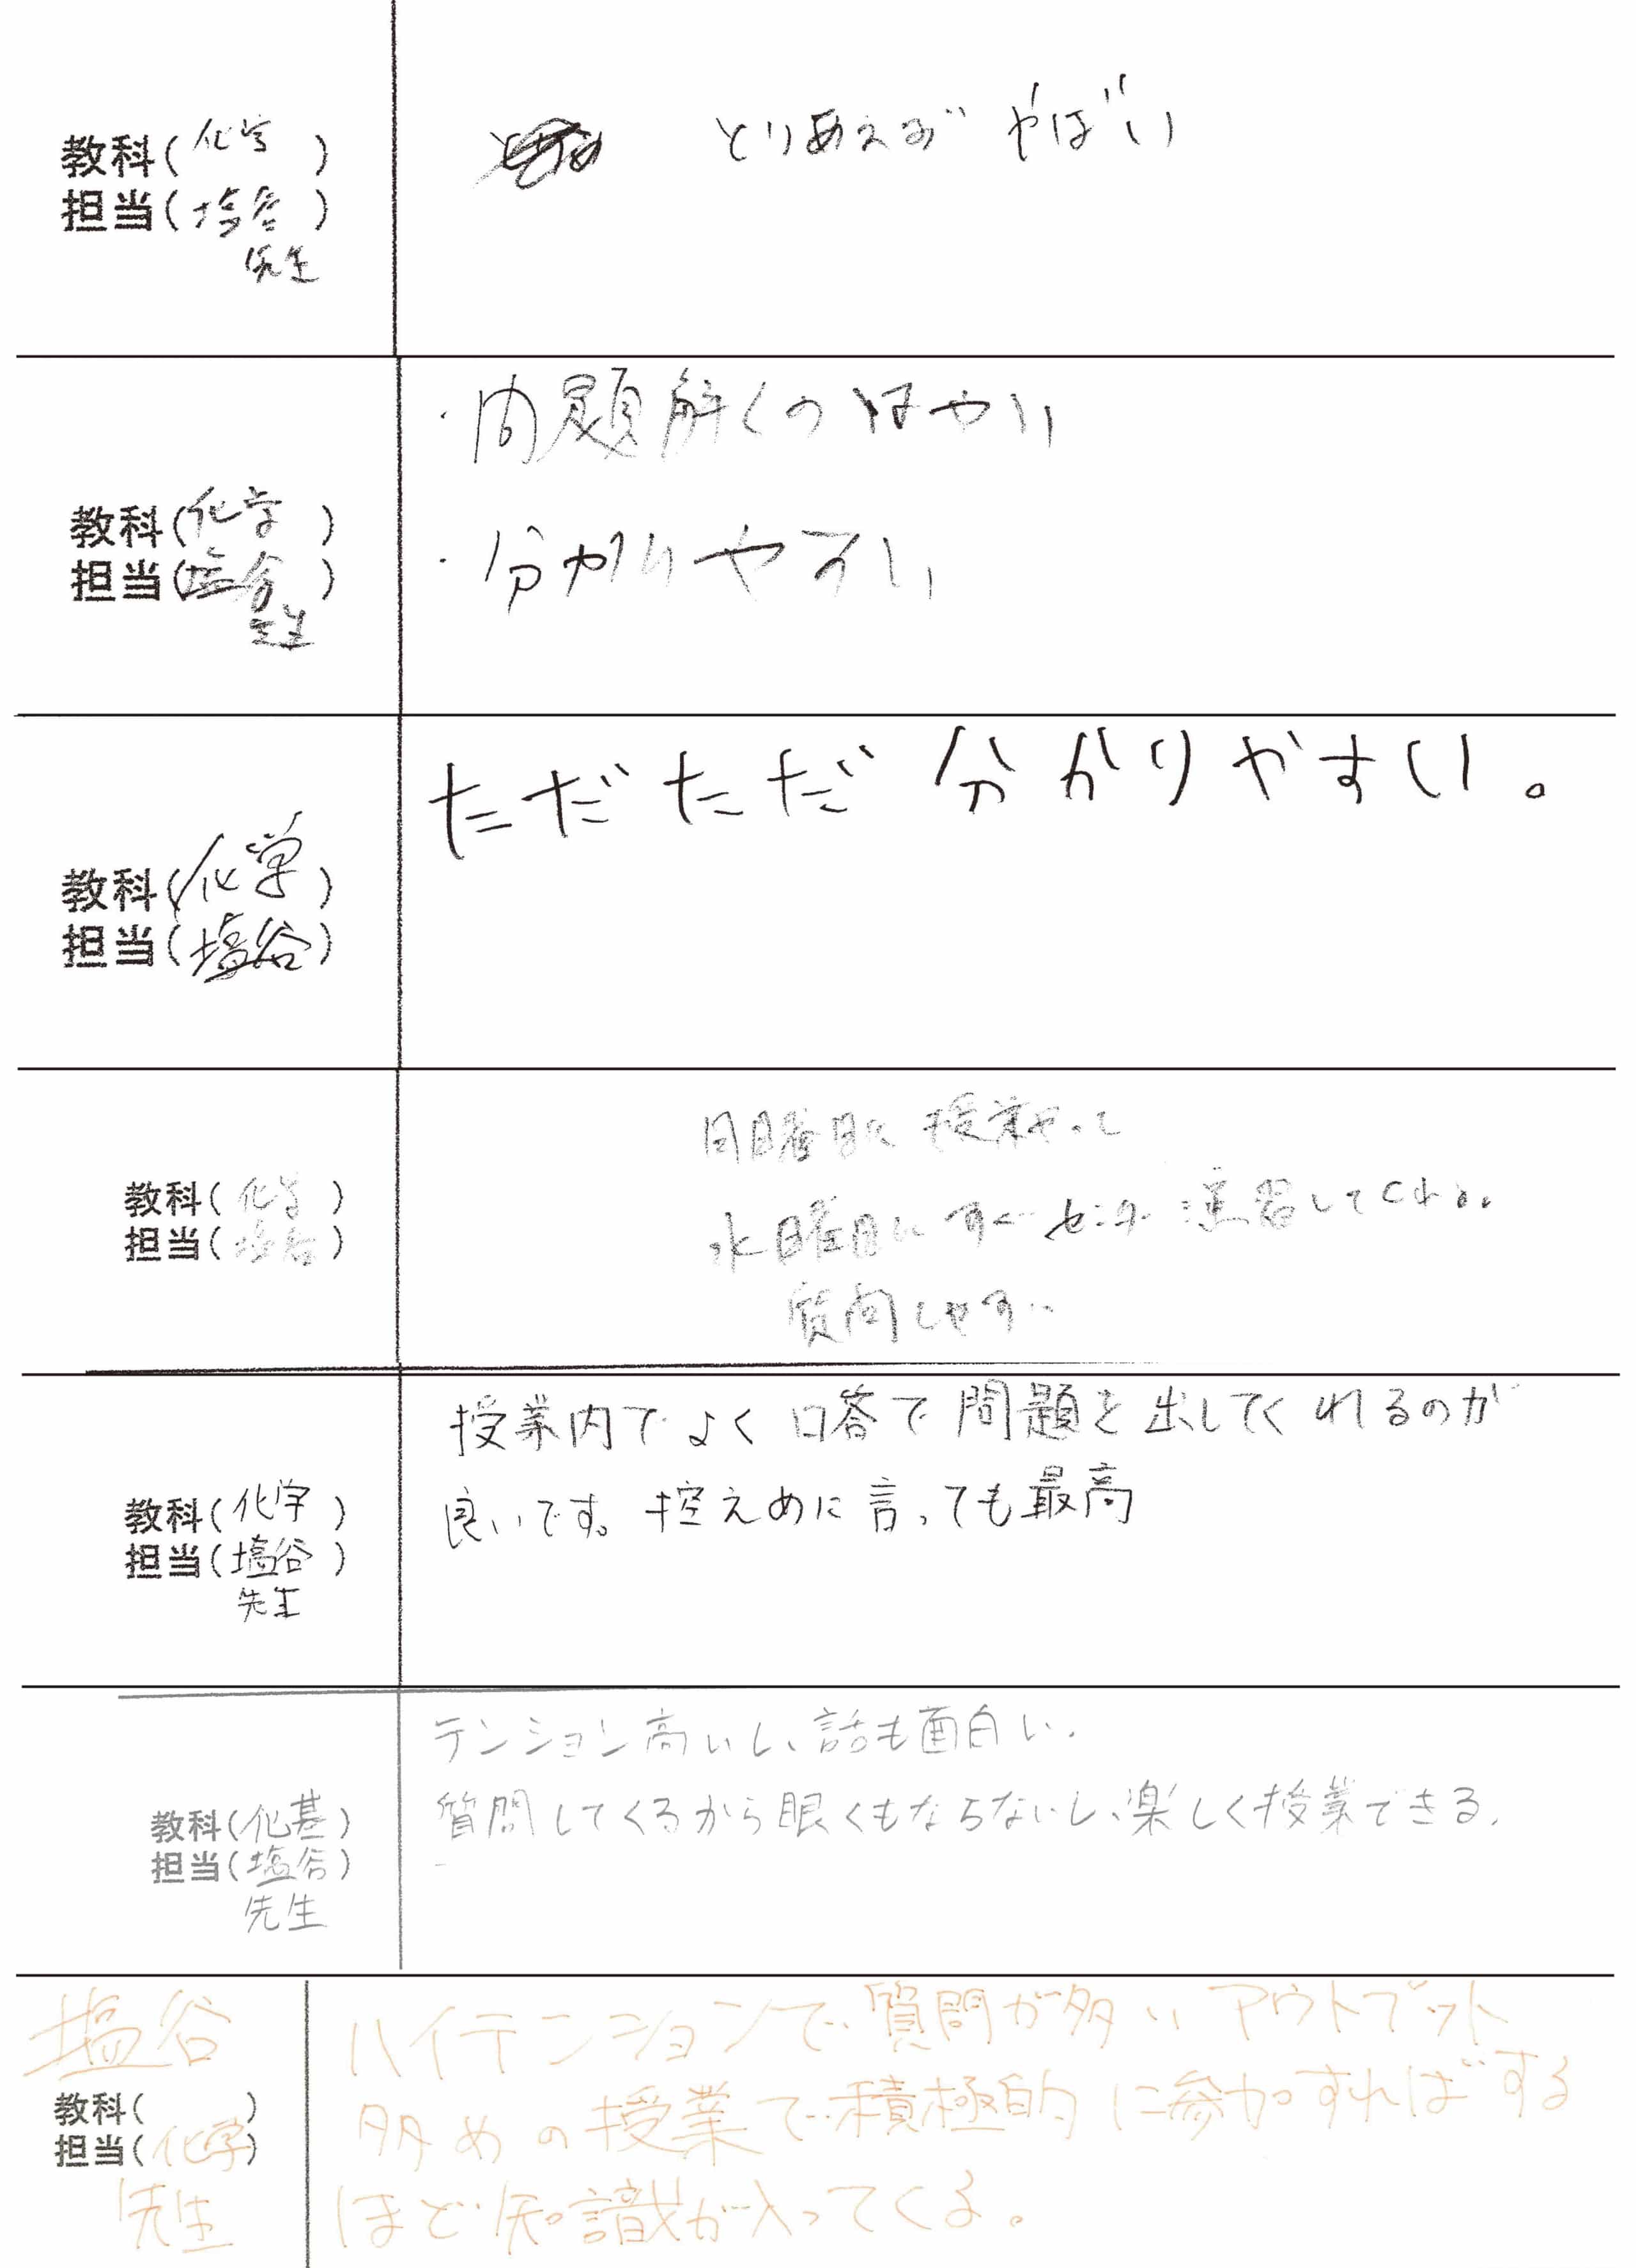 教科(化学)
担当(塩谷)
先生
とりあえず やばい
教科(化学)
担当(塩谷)
先生
・問題解くのはやい
・分かりやすい
教科(化学)
担当(塩谷)
ただただ分かりやすい。
教科(化学)
担当(塩谷)
日曜日に授業やって
水曜日にすぐセンター演習してくれる。
質問しやすい
教科(化学)
担当(塩谷)
先生
授業内でよく口答で問題を出してくれるのが
良いです。控えめに言っても最高
教科(化基)
担当(塩谷)
先生
テンション高いし、話も面白い。
質問してくるから眠くもならないし、楽しく授業できる。
塩谷
教科( )
担当(化学)
先生
ハイテンションで質問が多い アウトプット
多めの授業で積極的に参加すればする
ほど知識が入ってくる。